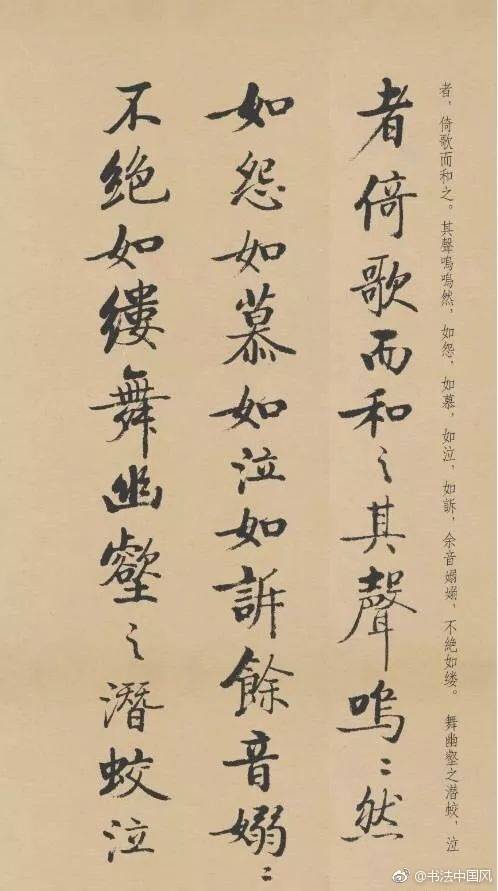 者，倚歌而和之。其聲嗚嗚然，如怨，如慕，如泣，如訴，余音嫋嫋，不絶如缕。舞幽壑之潜蛟，泣
者倚歌而和之其聲嗚〻然
如怨如慕如泣如訴餘音嫋〻
不絕如縷舞幽壑之潛蛟泣
@书法中国风